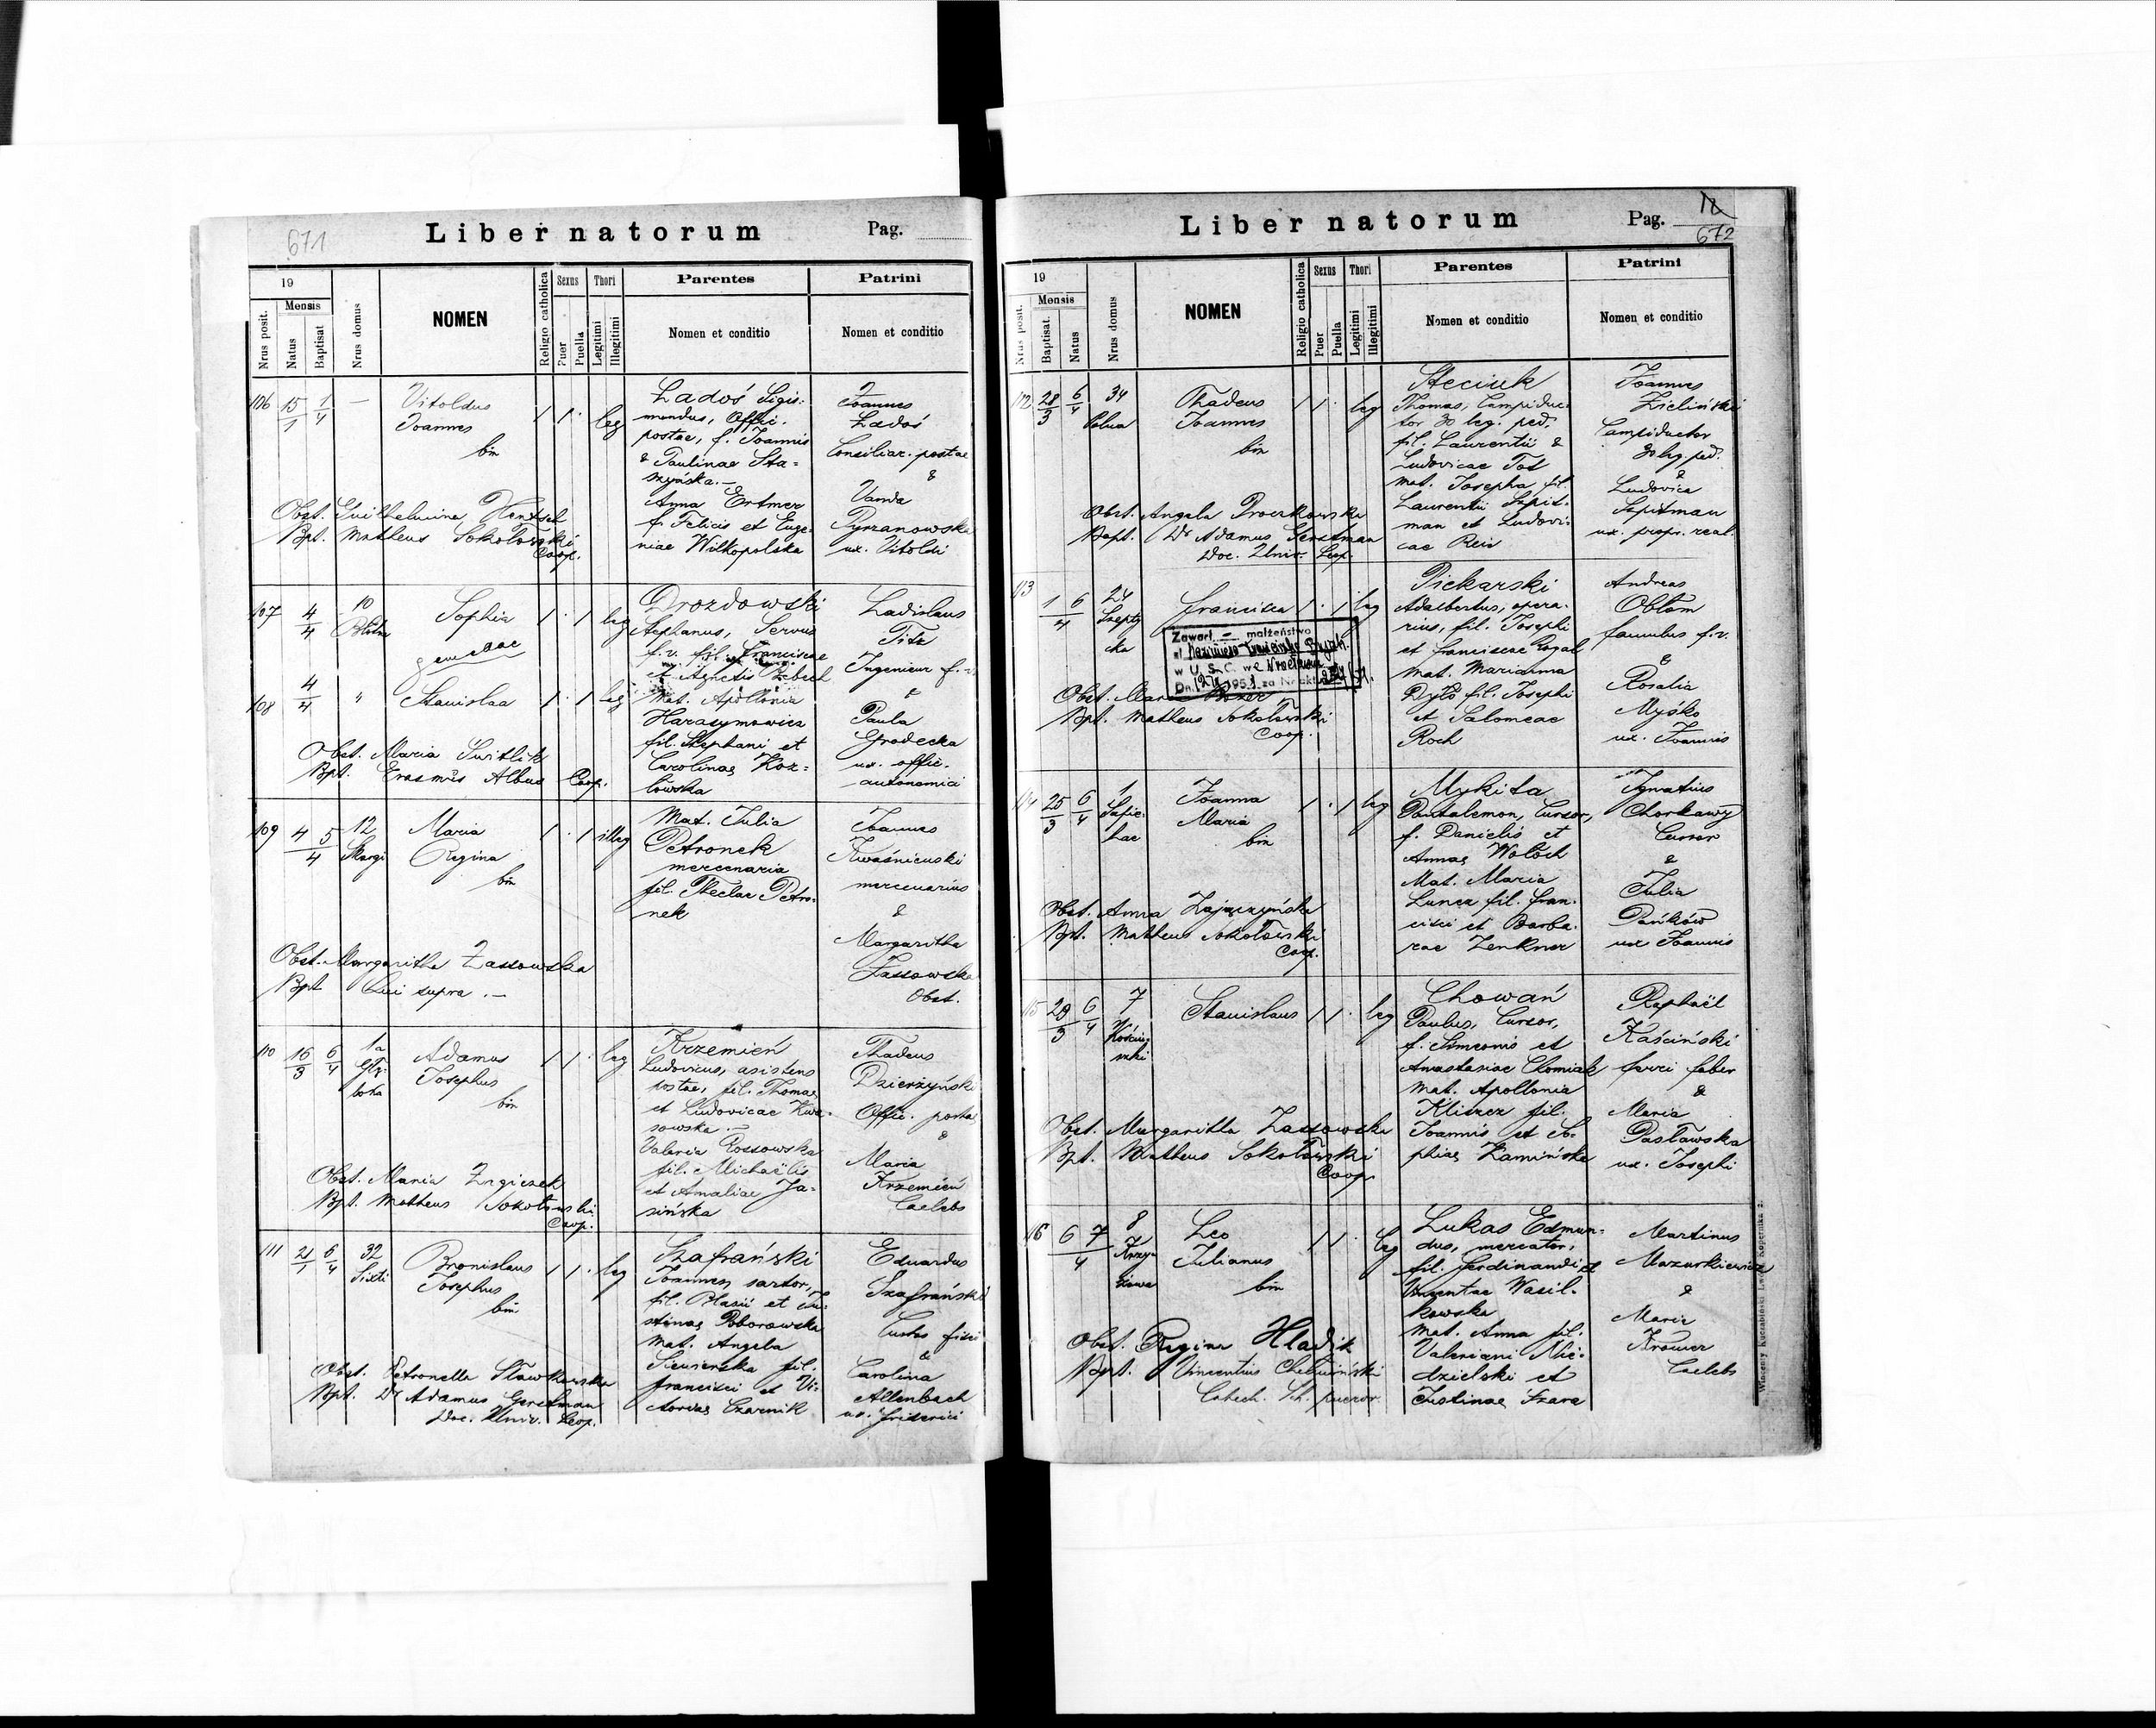 671
Liber natorum Pag.
19
Mensis
Nrus posit.
Natus
Baptisat
Nrus domus
NOMEN
Religio catholica
Sexus
Puer
Puella
Thori
Legitimi
Illegitimi
Parentes
Nomen et conditio
Patrini
Nomen et conditio
106 15/1 1/4 —
Vitoldus
Joannes
bin
1 1 · leg
Ładoś Sigis-
mundus, Offic.
postae, f. Joannis
& Paulinae Sta-
szyńska.—
Anna Ertmer
f. Felicis et Euge-
niae Wilkopolska
Joannes
Ładoś
Consiliar. postae
&
Vanda
Pyrzanowska
ux. Vitoldi
Obst. Guilhelmina Hentsch
Bpt. Mattheus Sokołowski
Coop.
107 4/4 10
Sophia
gemellae
1 · 1 leg
108 4/4 "
Stanislaa
1 · 1 leg
Drozdowski
Stephanus, Servus
f. v. fil. Franciscae
et Agnetis
Mat. Apollonia
Harasymowicz
fil. Stephani et
Carolinae Koz-
łowska
Ladislaus
Titz
Ingenieur f. v.
&
Paula
Grodecka
ux. offic.
autonomici
Obst. Maria Switlik
Bpt. Erasmus Albus Coop.
109 4 5/4 12
Skargi
Maria
Regina
bin
1 · 1 illeg
Mat. Julia
Petronek
mercenaria
fil. Theclae Petro-
nek
Joannes
Kwaśniewski
mercenarius
&
Margaritha
Zassowska
Obst.
Obst. Margaritha Zassowska
Bpt Qui supra .—
110 16/3 6/4 1a
Głę-
boka
Adamus
Josephus
bin
1 1 · leg
Krzemień
Ludovicus, asistens
postae, fil. Thomae
et Ludovicae Kwa-
sowska .—
Valeria Rossowska
fil. Michaëlis
et Amaliae Ja-
sińska
Thadeus
Dzierżyński
Offic. postae
&
Maria
Krzemień
Caelebs
Obst. Maria
Bpt. Mattheus Sokołowski
Coop.
111 21/1 6/4 32
Sixti
Bronislaus
Josephus
bin
1 1 · leg
Szafrański
Joannes, sartor,
fil. Blasii et Ju-
stinae Poborowska
Mat. Angela
Siewierska fil.
Francisci et Vi-
ctoriae Czarnik
Eduardus
Szafrański
Custos fisci
&
Carolina
Allenbach
ux. Friderici
Obst. Petronella Sławkowska
Bpt. Dr Adamus Gerstman
Doc. Univ. Leop.
12
672
Liber natorum Pag.
19
Mensis
Nrus posit.
Baptisat.
Natus
Nrus domus
NOMEN
Religio catholica
Sexus
Puer
Puella
Thori
Legitimi
Illegitimi
Parentes
Nomen et conditio
Patrini
Nomen et conditio
112 28/3 6/4 34
Thadeus
Joannes
bin
1 1 · leg
Steciuk
Thomas, Campiduc-
tor 30 leg. ped.
fil. Laurentii &
Ludovicae Tos
mat. Josepha fil.
Laurentii Szpit-
man et Ludovi-
cae Reis
Joannes
Zieliński
Campiductor
30 leg. ped.
&
Ludovica
Szpitman
ux. propr. real.
Obst. Angela Proczkowska
Bapt. Dr Adamus Gerstman
Doc. Univ. Leop.
113 1 6/4 24
Szepty-
cka
Francisca
1 · 1 leg
Zawarł — małżeństwo
w U.S.C. we Wrocławiu
Dn. 1951 za Nr akt
Piekarski
Adalbertus, opera-
rius, fil. Josephi
et Franciscae Rogal
mat. Marianna
Dyło fil. Josephi
et Salomeae
Roch
Andreas
Obłom
famulus f. v.
&
Rosalia
Myśko
ux. Joannis
Obst.
Bpt. Mattheus Sokołowski
Coop.
114 25/3 6/4 1
Sapie-
hae
Joanna
Maria
bin
1 · 1 leg
Mykita
Pantalemon, Cursor,
f. Danielis et
Annae Wołoch
Mat. Maria
Luncz fil. Fran-
cisci et Barba-
rae Zenkner
Ignatius
Chorkawy
Cursor
&
Julia
Pańków
ux Joannis
Obst. Anna Zajączyńska
Bpt. Mattheus Sokołowski
Coop.
115 29/3 6/4 7
Kościu-
szki
Stanislaus
1 1 · leg
Chowań
Paulus, Cursor,
f. Simeonis et
Anastasiae Chomiak
mat. Apollonia
Kliszcz fil.
Joannis et So-
phiae Kamińska
Raphaël
Kaściński
ferri faber
&
Maria
Pasławska
ux. Josephi
Obst. Margaritha Zassowska
Bpt. Mattheus Sokołowski
Coop.
116 6 7/4 8
Leo
Julianus
bin
1 1 · leg
Lukas Edmun-
dus, mercator,
fil. Ferdinandi et
Vincentae Wasil-
kowska
Mat. Anna fil.
Valeriani Nie-
dzielski et
Justinae Szara
Martinus
Mazurkiewicz
&
Maria
Kromer
Caelebs
Obst. Regina Hladik
Bpt. Vincentius
Catech. Sch. pueror.
Wincenty Kuczabiński Lwów Kopernika 2.